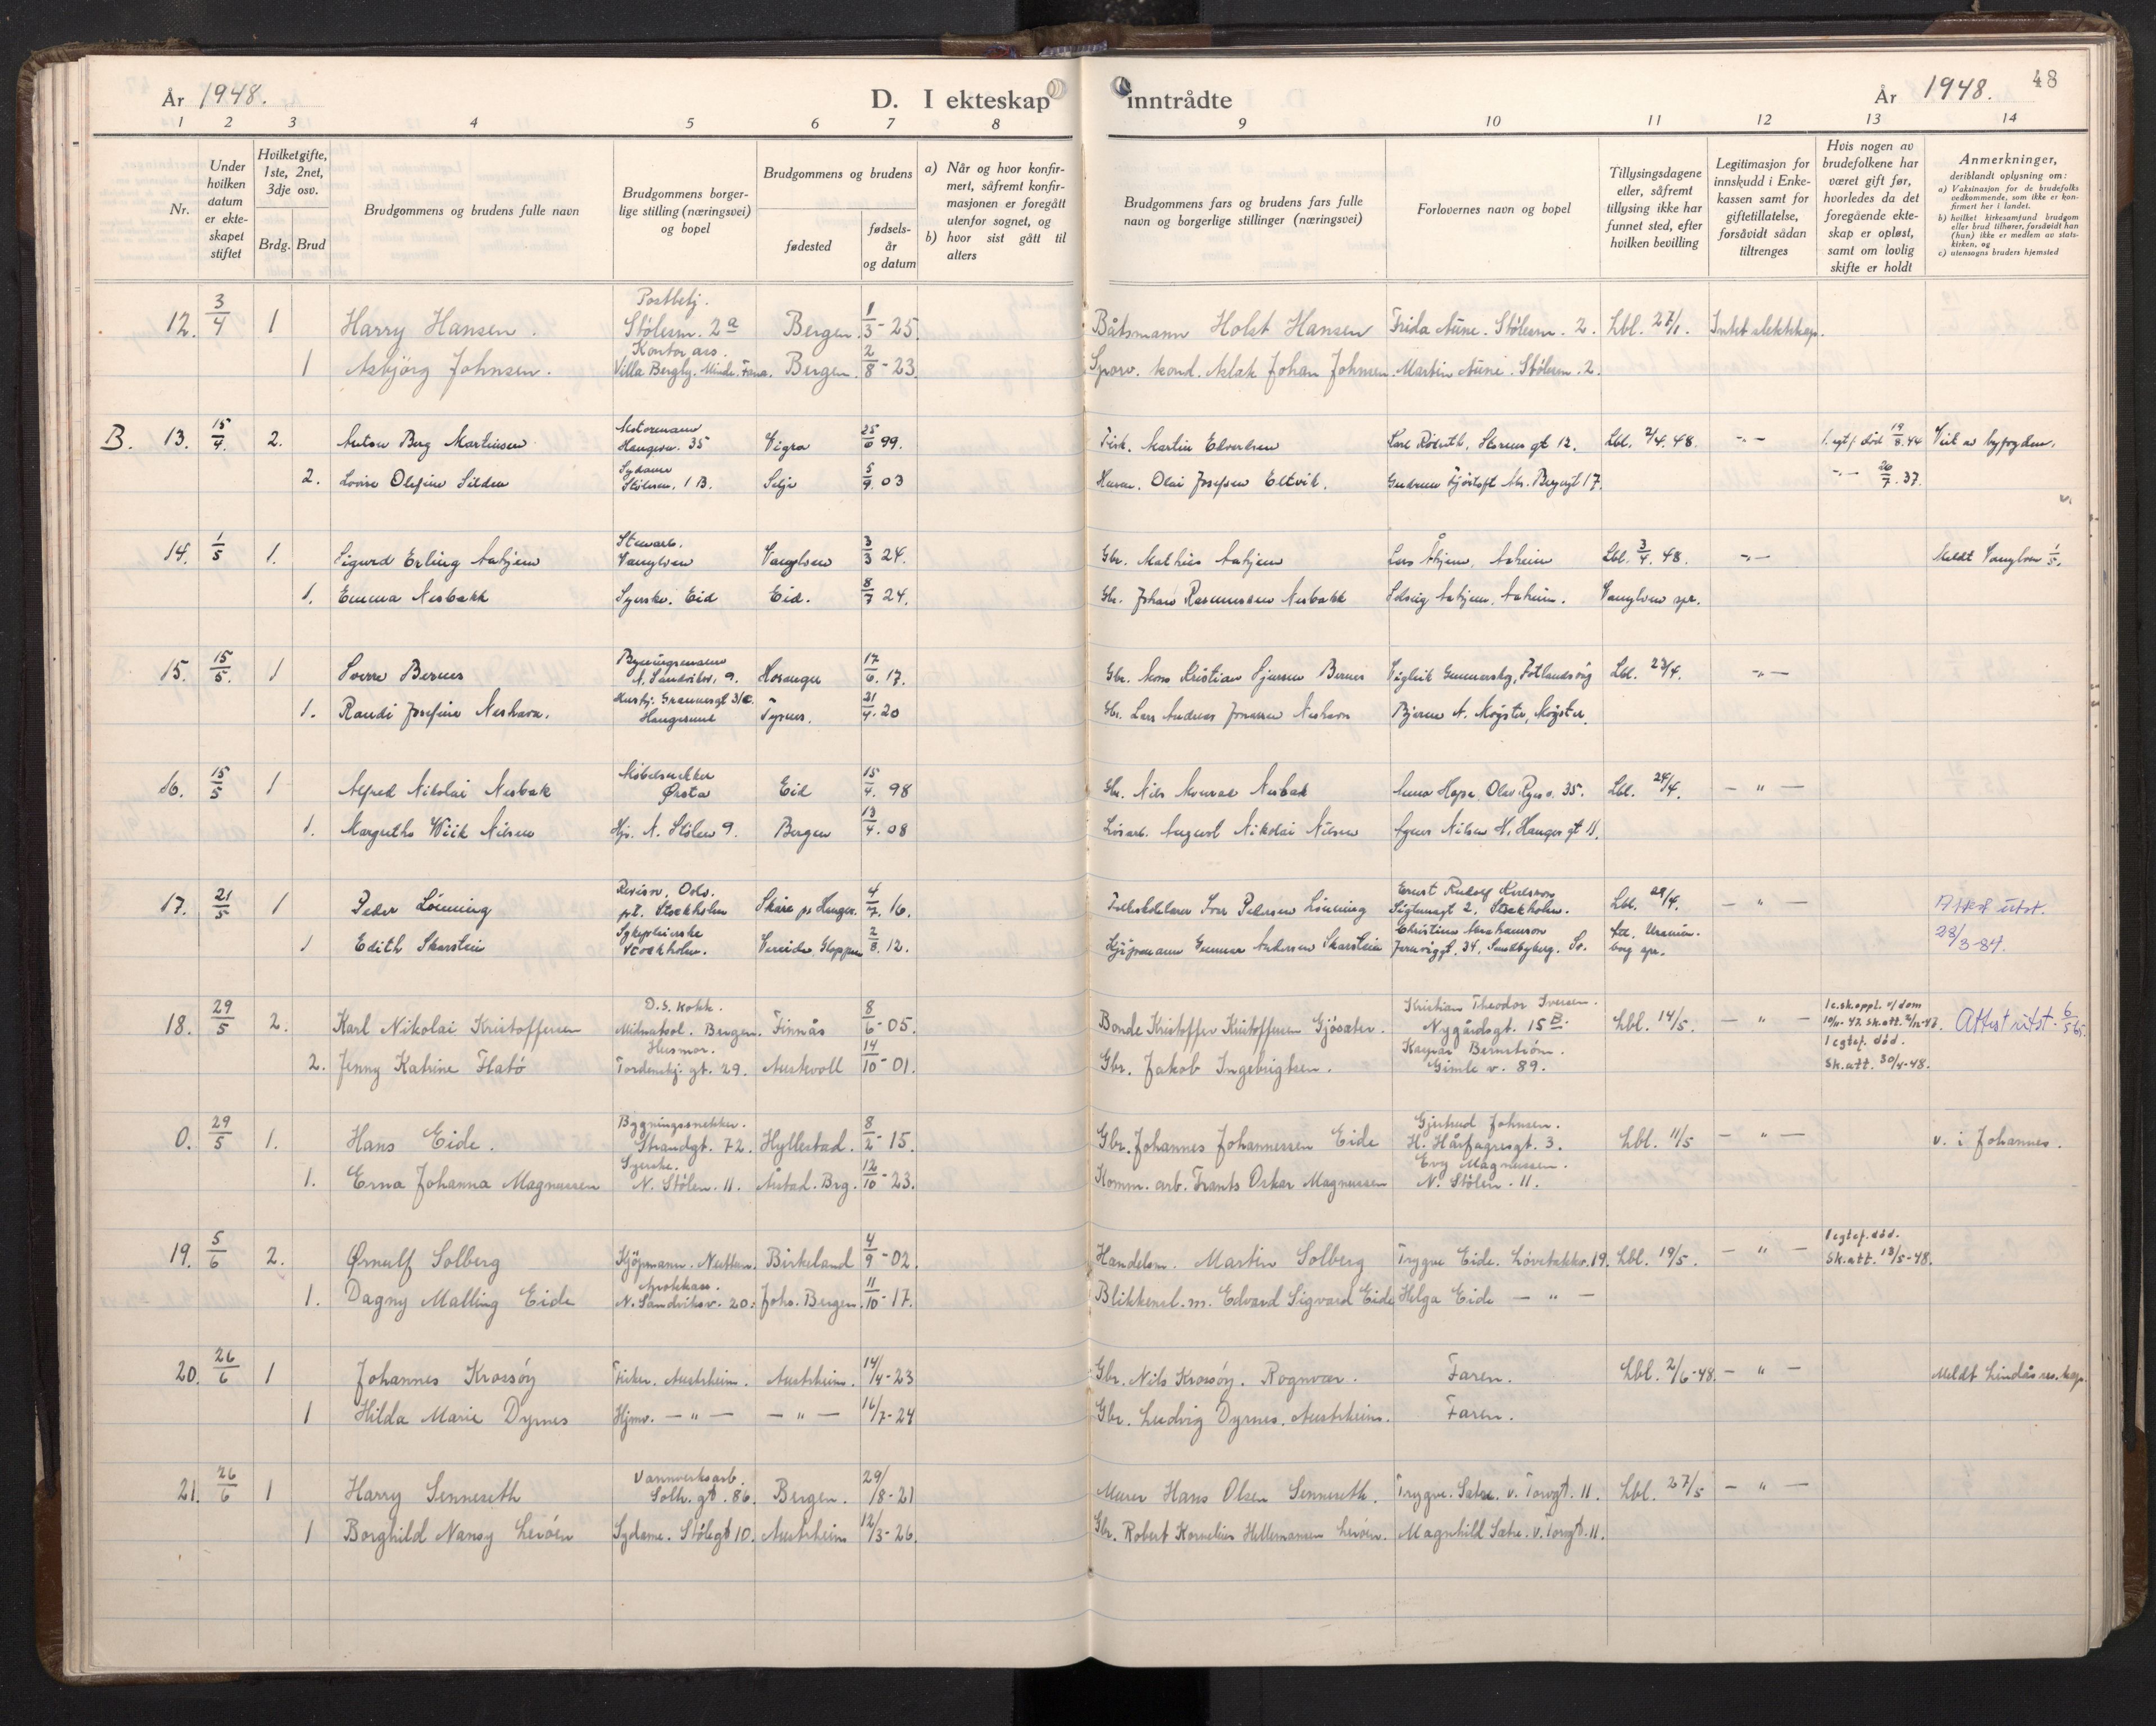 År 1948. D. I ekteskap inntrådte År 1948. 48
1 2 3 4 5 6 7 8 9 10 11 12 13 14
Nr.
Under hvilken datum er ekteskapet stiftet
Hvilketgifte, 1ste, 2net, 3dje osv.
Brdg. Brud
Brudgommens og brudens fulle navn
Brudgommens borgerlige stilling (næringsvei) og bopel
Brudgommens og brudens
fødested
fødselsår og datum
a) Når og hvor konfirmert, såfremt konfirmasjonen er foregått utenfor sognet, og
b) hvor sist gått til alters
Brudgommens fars og brudens fars fulle navn og borgerlige stillinger (næringsvei)
Forlovernes navn og bopel
Tillysingsdagene eller, såfremt tillysing ikke har funnet sted, efter hvilken bevilling
Legitimasjon for innskudd i Enkekassen samt for giftetillatelse, forsåvidt sådan tiltrenges
Hvis nogen av brudefolkene har været gift før, hvorledes da det foregående ekteskap er opløst, samt om lovlig skifte er holdt
Anmerkninger, deriblandt oplysning om:
a) Vaksinasjon for de brudefolks vedkommende, som ikke er konfirmert her i landet.
b) hvilket kirkesamfund brudgom eller brud tilhører, forsåvidt han (hun) ikke er medlem av statskirken, og
c) utensogns bruders hjemsted
12. 3/4 1 Harry Hansen. Postbetj. Stølesm. 2a Bergen. 1/3-25. Båtsmann Holst Hansen Frida Aune. Stølesm. 2. Lbl. 27/1. Intet slektskap.
1 Asbjørg Johnsen. Kontor ass. Villa Bergly. Minde. Fana. Bergen. 2/8-23. Sporv. kond. Aslak Johan Johnsen. Martin Aune. Stølesm. 2.
B. 13. 15/4. 2. Anton Berg Martinsen Motormann Haugev. 35 Vigra 25/6 99. Fisk. Martin Edvardsen 12. Lbl. 2/4.48. -"- 1. egt f. død 19/8.44 Viet av byfogden.
2. Lovise Olefine Silden Sydame Stølesm. 1 B. Selje 5/9.03 Olai Josefsen Eltvik. Gudrun 17. -"- 26/7.37.
14. 1/5 1. Sigurd Erling Aahjem Vanylven Vanylven 3/3 24. Gbr. Mathias Aahjem Lars Åhjem, Aaheim Lbl. 3/4. 48. -"- Meldt Vanylven 1/5.
1. Emma Nesbakk Syerske. Eid Eid. 8/7 24. Gbr. Johan Rasmussen Nesbakk Solveig Aahjem, Aaheim. Vanylven spr.
15. 15/5. 1 Sverre Bernes Bygningsmann N. Sandviksv. 9. Hosanger 17/6.17. Gbr. Mons Kristian Bernes Lbl. 23/4. -"-
1. Randi Josefine Neshavn. Haugesund Tysnes. 21/4.20 Gbr. Lars Andreas Jonassen Neshavn Bjarne A. Møgster, Møgster.
16. 15/5 1 Alfred Nikolai Nesbak Møbelsnekker Ørsta Eid 15/4. 98 Gbr. Nils Nesbak Anna Hope, Olav Ryes v. 35. Lbl. 24/4. -"-
1. Margrethe Wiik Nilsen Hjv. N. Stølen 9. Bergen 13/4.08 Løsarb. August Nikolai Nilsen Agnes Nilsen H. Hauges gt 11.
17. 21/5 1 Peder Lönning Revisor, Oslo. pt. Stockholm Skåre pr Hauges. 4/7 16. Folkeskolelærer Iver Pedersen Lönning Ernst Rudolf Karlsson Sigtunagt 2. Stockholm. Lbl. 29/4. -"- Attest utst.
1 Edith Skarstein Sykepleierske Stockholm. Vereide Gloppen 2/8.12. Kjöpmann Gunnar Andersen Skarstein Christina Abrahamson 34, Sundbyberg. Sv. spr. 28/3-84.
18. 29/5 2. Karl Nikolai Kristoffersen D.S. kokk. Midnatsol. Bergen. Finnås 8/6-05. Bonde Kristoffer Kristoffersen Gjøsæter. Kristian Theodor Iversen. Nygårdsgt. 15 B. Lbl. 14/5. -"- 1 e.sk. oppl. v/dom 10/11-47. sk.att. 2/12-47. Attest utst. 6/5 65.
2. Jenny Katrine Flatö Husmor. Tordenskj. gt. 29. Austevoll 14/10-01. Gbr. Jakob Ingebrigtsen. Kaspar Bernström. Gimle v. 89. 1 egtef. død. Sk.att. 30/4-48.
0. 29/5 1. Hans Eide. Bygningssnekker. Strandgt. 72. Hyllestad. 8/2-15. Gbr. Johannes Johannessen Eide Gjertrud Johnsen. H. Hårfagresgt. 3. Lbl. 11/5 -"- v. i Johannes.
1. Erna Johanna Magnussen Syerske. N. Stølen. 11. Årstad. Brg. 12/10-23. Komm. arb. Frants Oskar Magnussen Evy Magnussen. N. Stølen. 11.
19. 5/6 2. Ørnulf Solberg Kjöpmann. Nesttun. Birkeland 4/9-02. Handelsm. Martin Solberg Trygve Eide. Løvstakkv. 19. Lbl. 19/5. -"- 1 egtef. død. Sk.att. 13/5-48.
1. Dagny Malling Eide Apotekass. N. Sandviksv. 20. Johs. Bergen. 11/10-17. Blikkensl. m. Edvard Sigvard Eide Helga Eide -"-
20. 26/6 1 Johannes Krossöy Fisker. Austrheim. Austrheim. 14/4-23 Gbr. Nils Krossöy. Rognvær. Faren. Lbl. 2/6-48. -"- Meldt Lindås res. kap.
1 Hilda Marie Dyrnes Hjmv. -"- -"- 16/7-24 Gbr. Ludvig Dyrnes. Austrheim. Faren.
21. 26/6 1 Harry Senneseth Vannverksarb. Solh. gt. 86. Bergen. 29/8-21 Murer Hans Olsen Senneseth. Trygve. Sætre. v. Torvgt. 11. Lbl. 27/5 -"-
1 Borghild Nansy Leröen Sydame. Stølegt 10. Austrheim 12/3-26. Gbr. Robert Kornelius Hellemansen Leröen. Magnhild Sætre. v. Torvgt. 11.